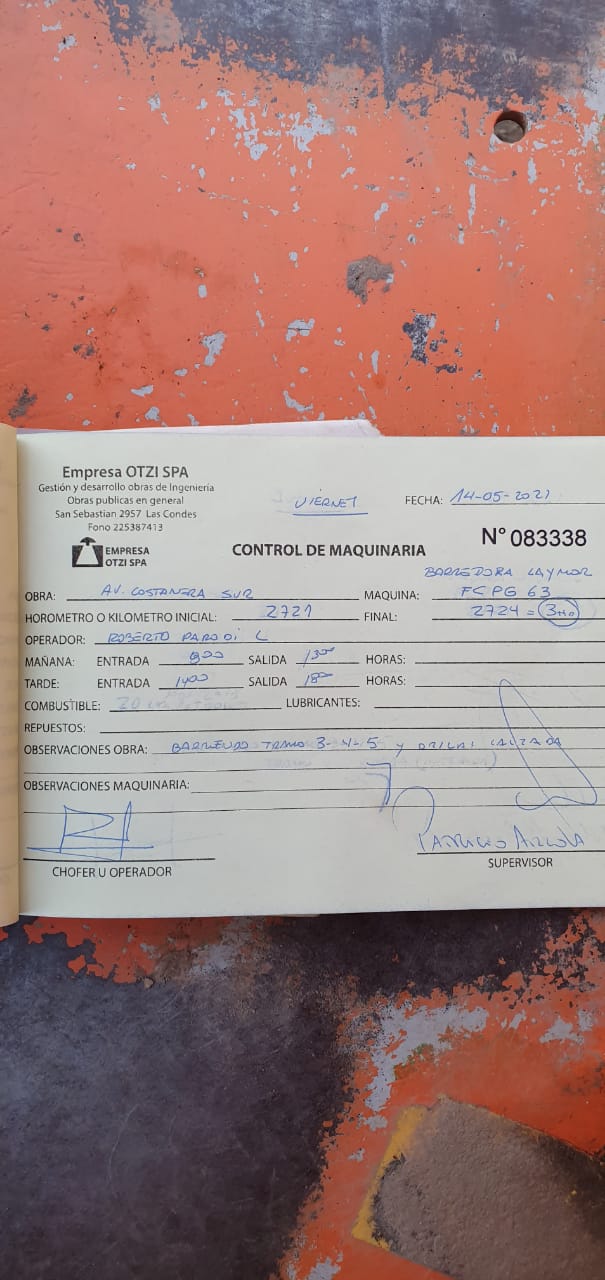 Empresa OTZI SPA
Gestión y desarrollo obras de Ingeniería
Obras publicas en general
San Sebastian 2957 Las Condes
Fono 225387413
EMPRESA
OTZI SPA
VIERNET
FECHA: 14-05-2021
CONTROL DE MAQUINARIA
N° 083338
BARREDORA LAYMOR
OBRA: AV. COSTANERA SUR MAQUINA: FCPG 63
HOROMETRO O KILOMETRO INICIAL: 2721 FINAL: 2724 =
OPERADOR: ROBERTO PARODI L
MAÑANA: ENTRADA 800 SALIDA 1300 HORAS:
TARDE: ENTRADA 1400 SALIDA 1800 HORAS:
COMBUSTIBLE: LUBRICANTES:
REPUESTOS:
OBSERVACIONES OBRA: BARRIENDO TRAMO 3-4-5 y CALZADA
OBSERVACIONES MAQUINARIA:
CHOFER U OPERADOR
SUPERVISOR